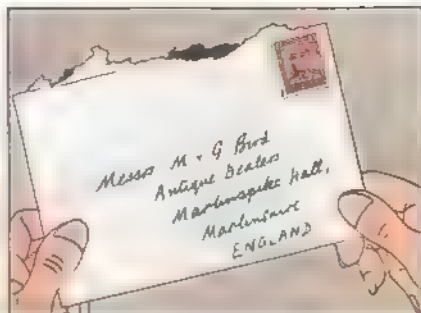 Messrs M & G Bird
Antique Dealers
Marlinspike Hall,
Marlinshire
ENGLAND